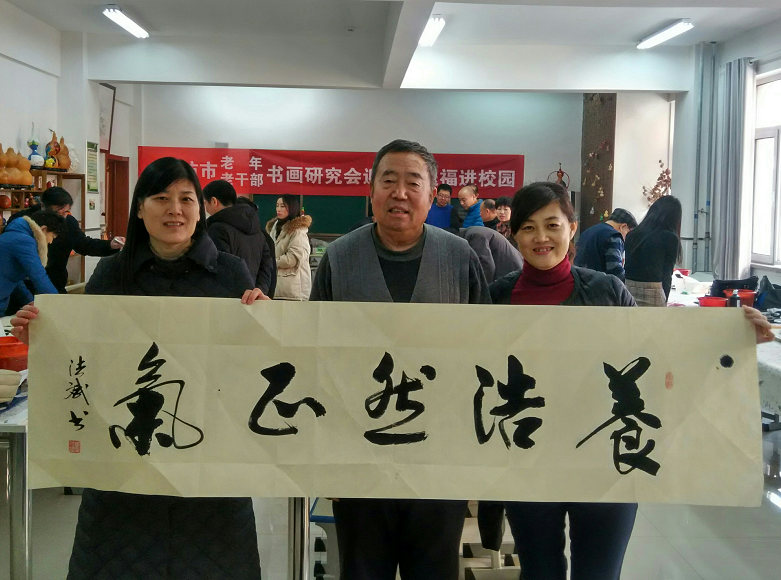 市老年老干部书画研究会 福进校园
養浩然正氣
法斌书